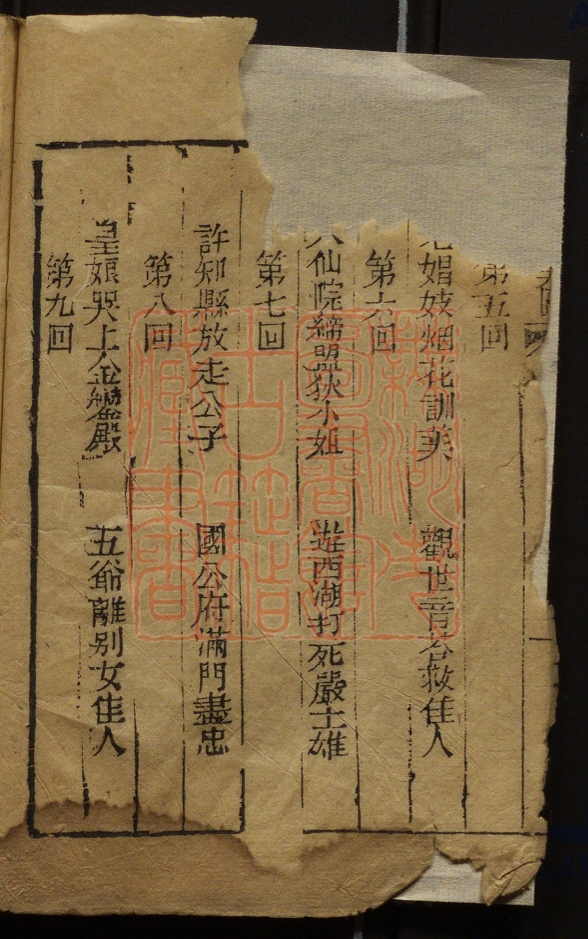 第五回
娼妓烟花訓美 觀世音答救佳人
第六回
仙院締盟狄小姐 遊西湖打死嚴士雄
第七回
許知縣放走公子 國公府滿門盡忠
第八回
皇娘哭上金鑾殿 五爺離別女佳人
第九回